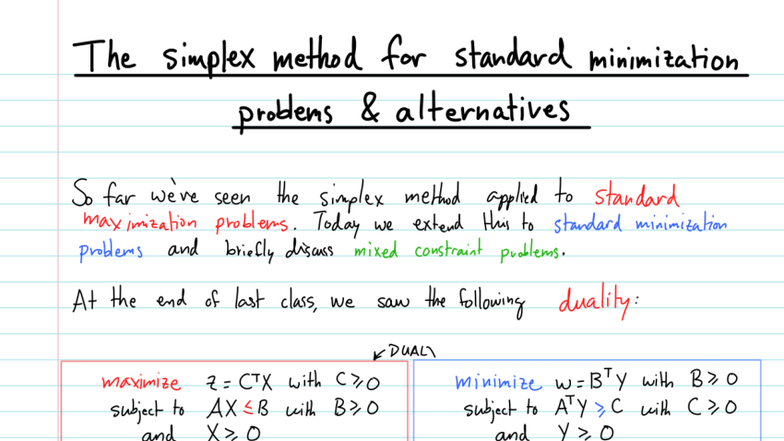 The simplex method for standard minimization
problems & alternatives
So far we've seen the simplex method applied to standard
maximization problems. Today we extend this to standard minimization
problems and briefly discuss mixed constraint problems.
At the end of last class, we saw the following duality:
↙DUAL↘
maximize z = CᵀX with C ≥ 0
subject to AX ≤ B with B ≥ 0
and X ≥ 0
minimize w = BᵀY with B ≥ 0
subject to AᵀY ≥ C with C ≥ 0
and Y ≥ 0